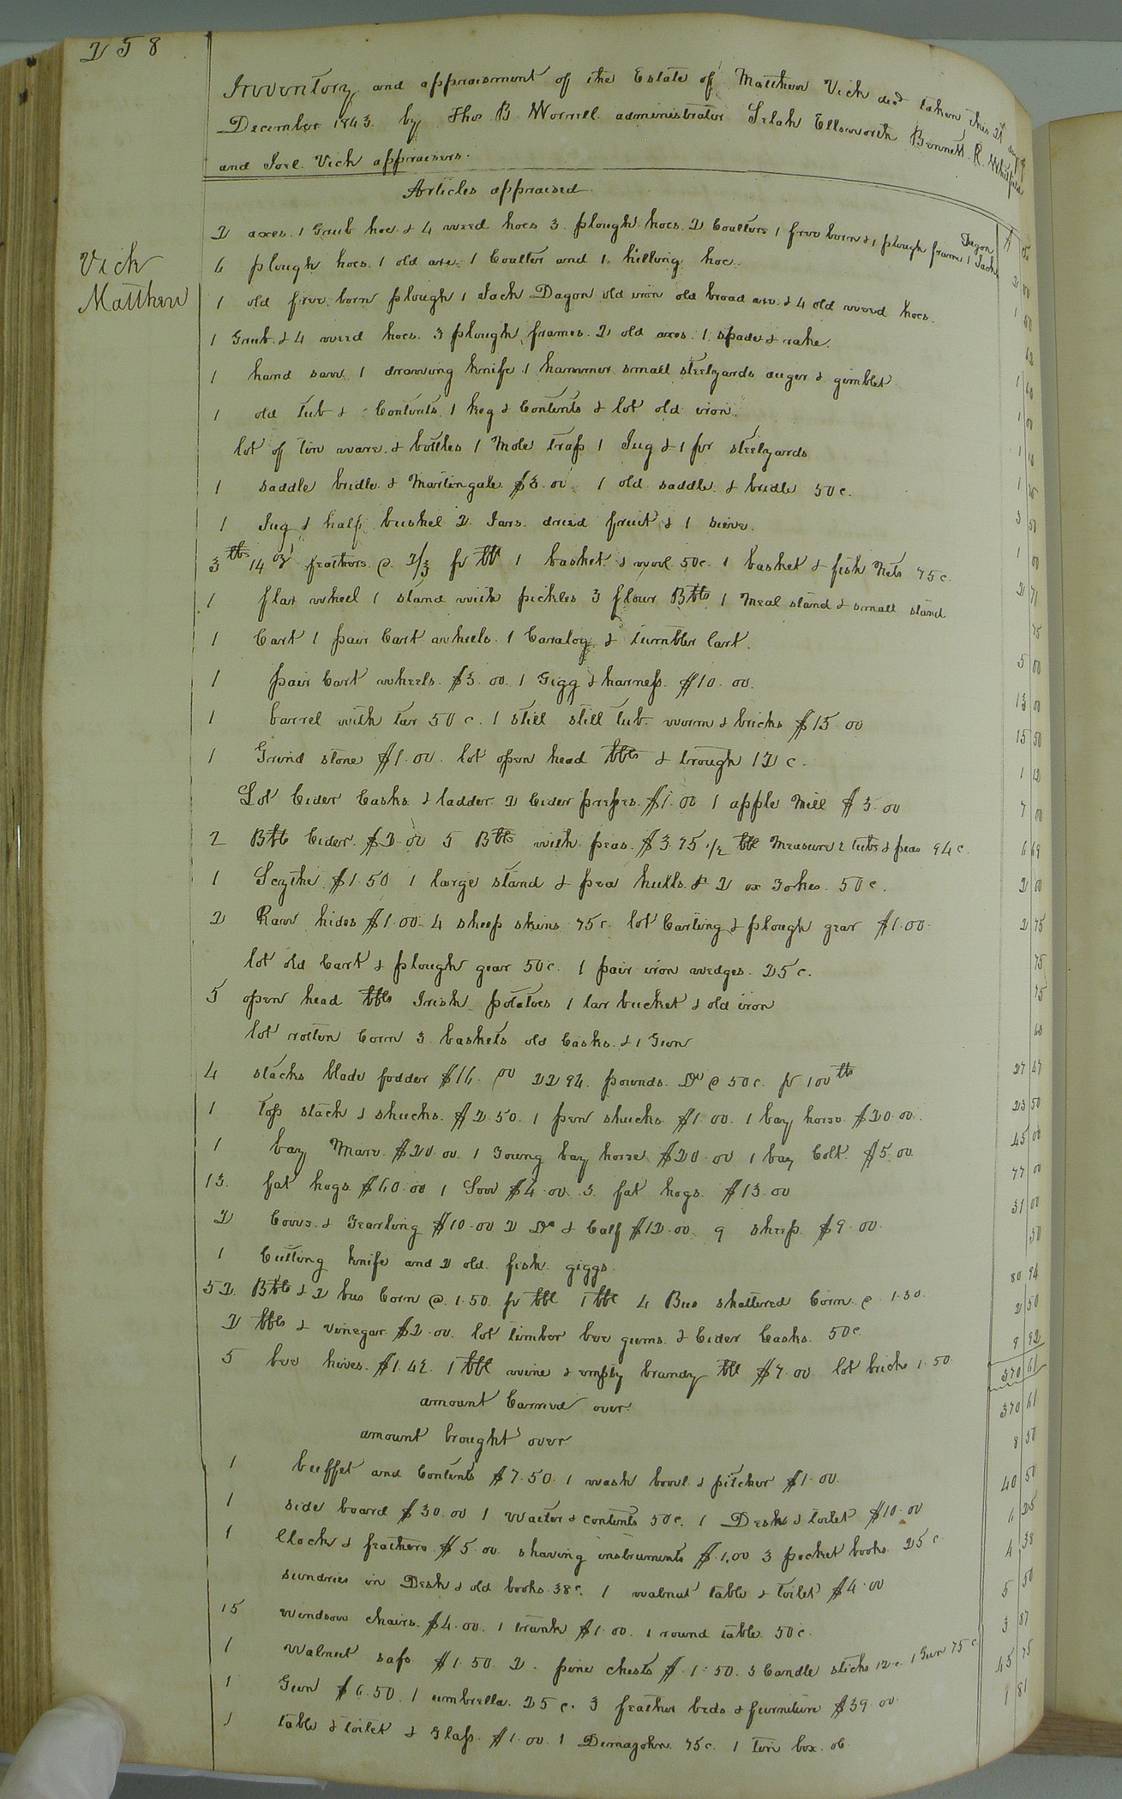 258
Inventory and appraisment of the Estate of Matthew Vick decd taken this 21st day of
December 1843. by Thos B Worrell administrator Selah Ellsworth Bennett R. Whitfield
and Joel Vick appraisers.
Articles appraised
Vick
Matthew
2 axes. 1 Grub hoe & 4 weed hoes 3 plough hoes. 2 Coulters 1 free born & 1 plough frame 1 Jack Dagon
6 plough hoes. 1 old axe. 1 Coulter and 1 hilling hoe
1 old free born plough 1 Jack Dagon old iron old broad axe & 4 old weed hoes.
1 Grub & 4 weed hoes. 3 plough frames. 2 old axes. 1 spade & rake.
1 hand saw 1 drawing knife 1 hammer small steelyards auger & gimblet
1 old tub & Contents 1 keg & Contents & lot old iron.
lot of tin ware & bottles 1 Mole trap 1 Jug & 1 pr steelyards
1 saddle bridle & Martingale $3.00 1 old saddle & bridle 50 c.
1 Jug & half bushel 2 Jars. dried fruit & 1 sieve.
3 lbs 14 oz feathers @ 2/3 pr lb 1 basket & wool 50c. 1 basket & fish Nets 75 c
1 flax wheel 1 stand with pickles 3 flour Bbls 1 Meal stand & small stand
1 Cart 1 pair Cart wheels. 1 Caralog & tumbler Cart.
1 pair Cart wheels. $3.00. 1 Gigg & harness. $10.00.
1 barrel with tar 50 c. 1 still still tub worm & bricks $15 00
1 Grind stone $1.00. lot open head bbls & trough 12 c.
Lot Cider Casks & ladder 2 Cider presses. $1.00 1 apple Mill $5.00
2 Bbls Cider. $2.00 5 Bbls with peas. $3.75 1/2 bbl Measure 2 tubs & peas 94 c
1 Scythe. $1.50 1 large stand & pea hulls & 2 ox yokes. 50 c.
2 Raw hides $1.00. 4 sheep skins 75 c. lot Carting & plough gear $1.00.
lot old Cart & plough gear 50 c. 1 pair iron wedges. 25 c.
5 open head bbls Irish potatoes 1 tar bucket & old iron
lot rotten Corn 3 baskets old Casks. & 1 Gun
4 stacks blade fodder $16.00 2294 pounds. Do @ 50 c. pr 100 lbs
1 top stack & shucks. $2.50. 1 pen shucks $1.00. 1 bay horse $20.00.
1 bay Mare $20.00. 1 Young bay horse $20.00 1 bay Colt. $5.00
13 fat hogs $60.00 1 Sow $4.00. 3 fat hogs. $13.00
2 Cows. & Yearling $10.00 2 Do & Calf $12.00. 9 sheep. $9.00.
1 Cutting knife and 2 old fish giggs.
52 Bbls & 2 bus Corn @ 1.50. pr bbl 1 bbl 4 Bus shattered Corn @ 1.30.
2 bbls & vinegar $2.00. lot timber bee gums. & Cider Casks. 50 c
5 bee hives. $1.42. 1 bbl wine & empty brandy bbl $7.00 lot bricks 1.50
370 61
amount Carried over. 370 61
amount brought over
1 buffet and Contents $7.50. 1 wash bowl & pitcher $1.00. 8 50
1 side board $30.00 1 Waiter & contents 50 c. 1 Desk & toilet $10.00 40 50
1 Clock & feathers $5.00. shaving instruments $1.00 3 pocket books 25 c 6 25
sundries in Desk & old books. 38 c. 1 walnut table & toilet $4.00 4 38
15 Windsor chairs. $4.00. 1 trunk $1.00. 1 round table 50 c. 5 50
1 Walnut safe $1.50. 2 pine chests $1.50. 3 Candle sticks 12 c. 1 Gun 75 c 3 87
1 Gun $6.50. 1 umbrella. 25 c. 3 feather beds & furniture $39.00. 45 75
1 table & toilet & Glass. $1.00. 1 Demagohn 75 c. 1 tin box. 06 1 81